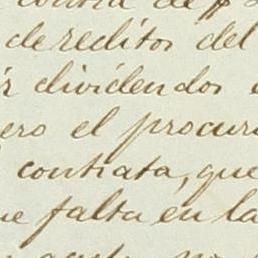 contra de $
de reditos del
r dividendos
ero el procur
contrata, que
ue falta en la